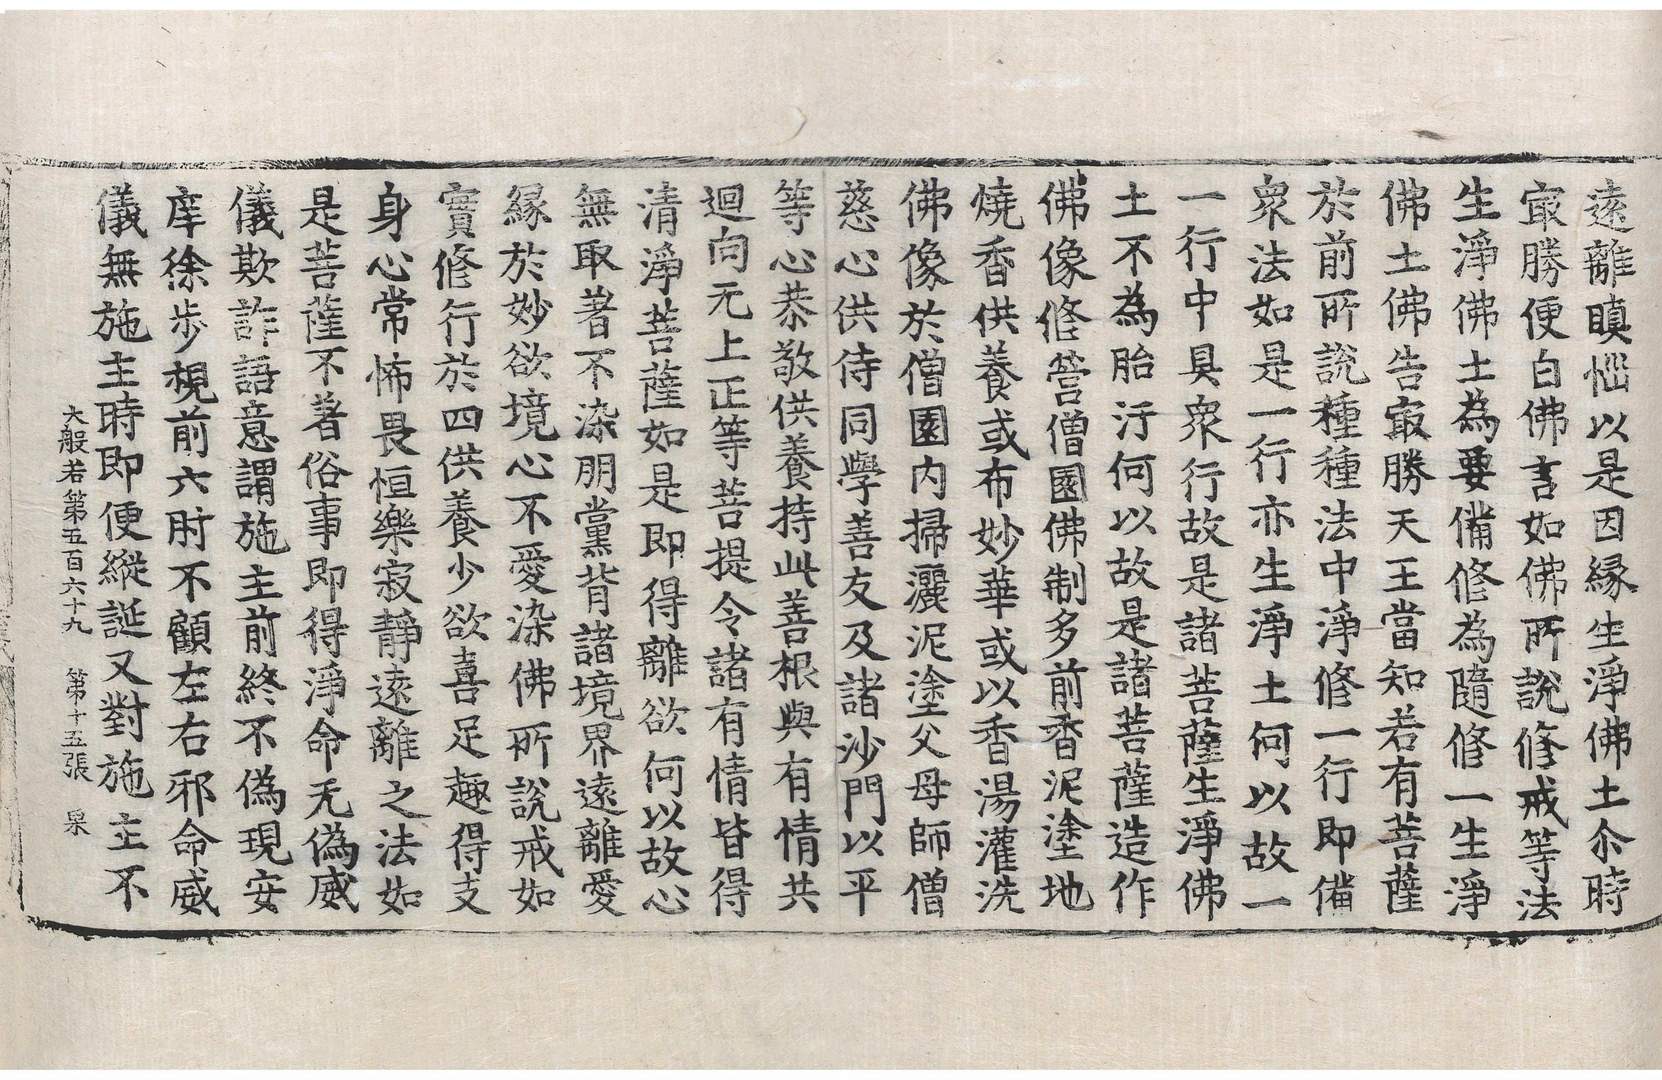 遠離瞋惱以是因緣生淨佛土尒時
㝡勝便白佛言如佛所說修戒等法
生淨佛土為要備修為隨修一生淨
佛土佛告㝡勝天王當知若有菩薩
於前所說種種法中淨修一行即備
衆法如是一行亦生淨土何以故一
一行中具衆行故是諸菩薩生淨佛
土不為胎汙何以故是諸菩薩造作
佛像修營僧園佛制多前香泥塗地
燒香供養或布妙華或以香湯灌洗
佛像於僧園內掃灑泥塗父母師僧
慈心供侍同學善友及諸沙門以平
等心恭敬供養持此善根與有情共
迴向无上正等菩提令諸有情皆得
清淨菩薩如是即得離欲何以故心
無取著不染朋黨背諸境界遠離愛
緣於妙欲境心不愛染佛所說戒如
實修行於四供養少欲喜足趣得支
身心常怖畏恒樂寂靜遠離之法如
是菩薩不著俗事即得淨命无偽威
儀欺詐語意謂施主前終不偽現安
庠徐步視前六肘不顧左右邪命威
儀無施主時即便縱誕又對施主不
大般若第五百六十九 第十五張 杲